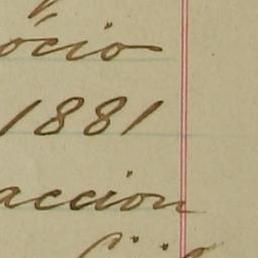 ócio
1881
accion